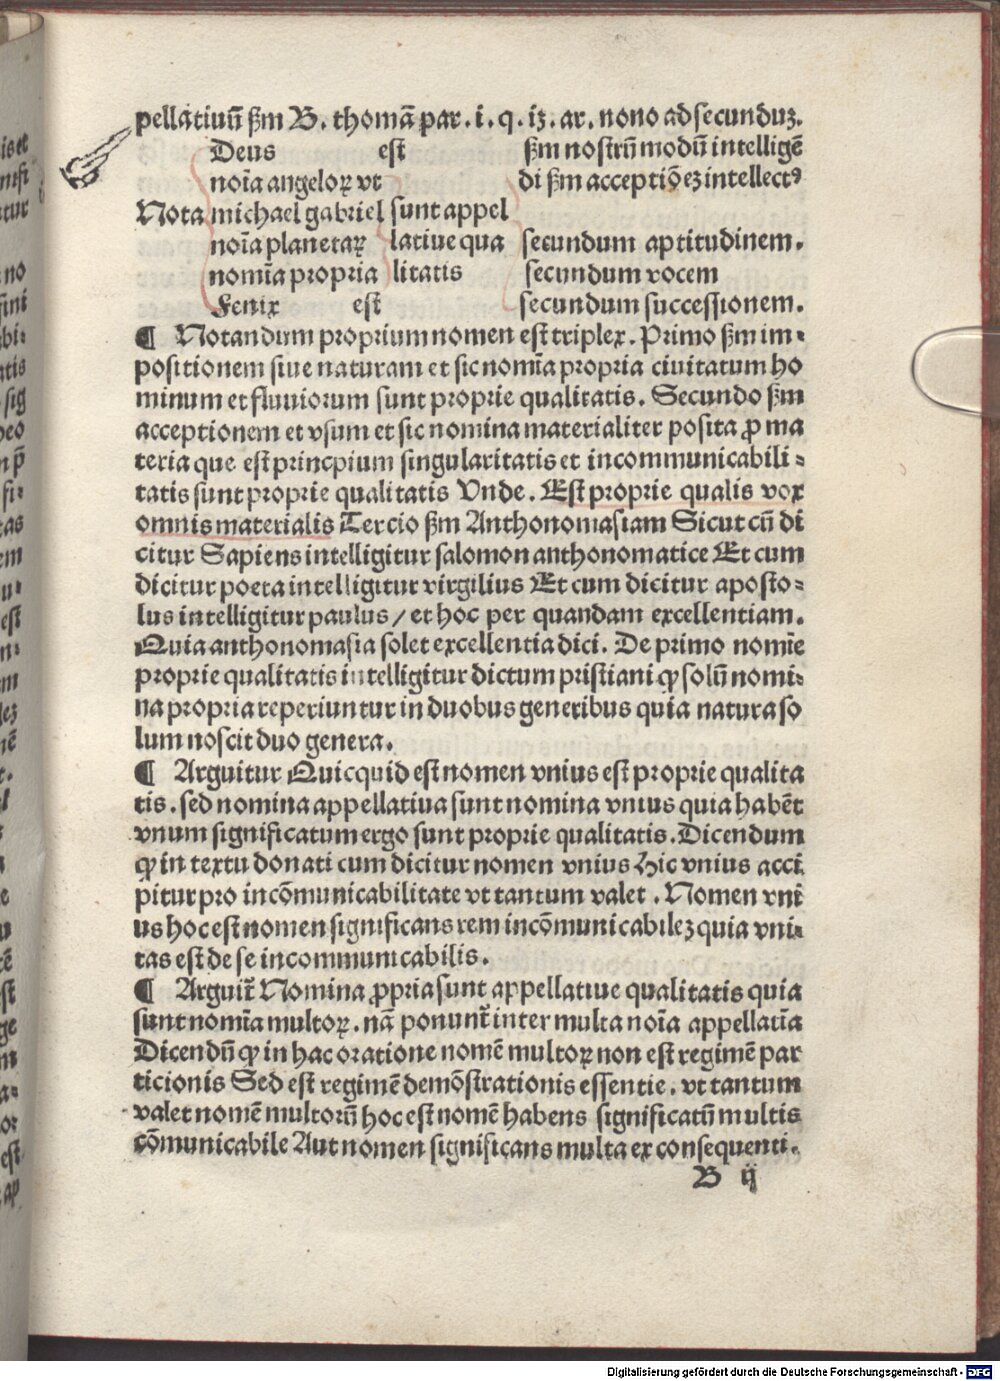 pellatiuū ẜm B. thomā par. i. q. iꝫ. ar. nono ad secunduꝫ.
Deus est ẜm nostrū modū intelligē
noīa angeloꝝ vt di ẜm acceptiōeꝫ intellectꝰ
Nota michael gabriel sunt appel
noīa planetaꝝ latiue qua secundum aptitudinem.
nomīa propria litatis secundum vocem
Fenix est secundum successionem.
¶ Notandum proprium nomen est triplex. Primo ẜm im⸗
positionem siue naturam et sic nomīa propria ciuitatum ho
minum et fluuiorum sunt proprie qualitatis. Secundo ẜm
acceptionem et vsum et sic nomina materialiter posita ꝓ ma
teria que est princpium singularitatis et incommunicabili⸗
tatis sunt proprie qualitatis Vnde. Est proprie qualis vox
omnis materialis Tercio ẜm Anthonomasiam Sicut cū di
citur Sapiens intelligitur salomon anthonomatice Et cum
dicitur poeta intelligitur virgilius Et cum dicitur aposto⸗
lus intelligitur paulus / et hoc per quandam excellentiam.
Quia anthonomasia solet excellentia dici. De primo nomīe
proprie qualitatis intelligitur dictum pristiani ꝙ solū nomi⸗
na propria reperiuntur in duobus generibus quia natura so
lum noscit duo genera.
¶ Arguitur Quicquid est nomen vnius est proprie qualita
tis. sed nomina appellatiua sunt nomina vnius quia habēt
vnum significatum ergo sunt proprie qualitatis. Dicendum
ꝙ in textu donati cum dicitur nomen vnius Hic vnius acci
pitur pro incōmunicabilitate vt tantum valet . Nomen vni
us hoc est nomen significans rem incōmunicabileꝫ quia vni⸗
tas est de se incommunicabilis.
¶ Arguit᷑ Nomina ꝓpria sunt appellatiue qualitatis quia
sunt nomīa multoꝝ. nā ponunt᷑ inter multa noīa appellatīa
Dicendū ꝙ in hac oratione nomē multoꝝ non est regimē par
ticionis Sed est regimē demōstrationis essentie. vt tantum
valet nomē multorū hoc est nomē habens significatū multis
cōmunicabile Aut nomen significans multa ex consequenti.
B ij
Digitalisierung gefördert durch die Deutsche Forschungsgemeinschaft - DFG